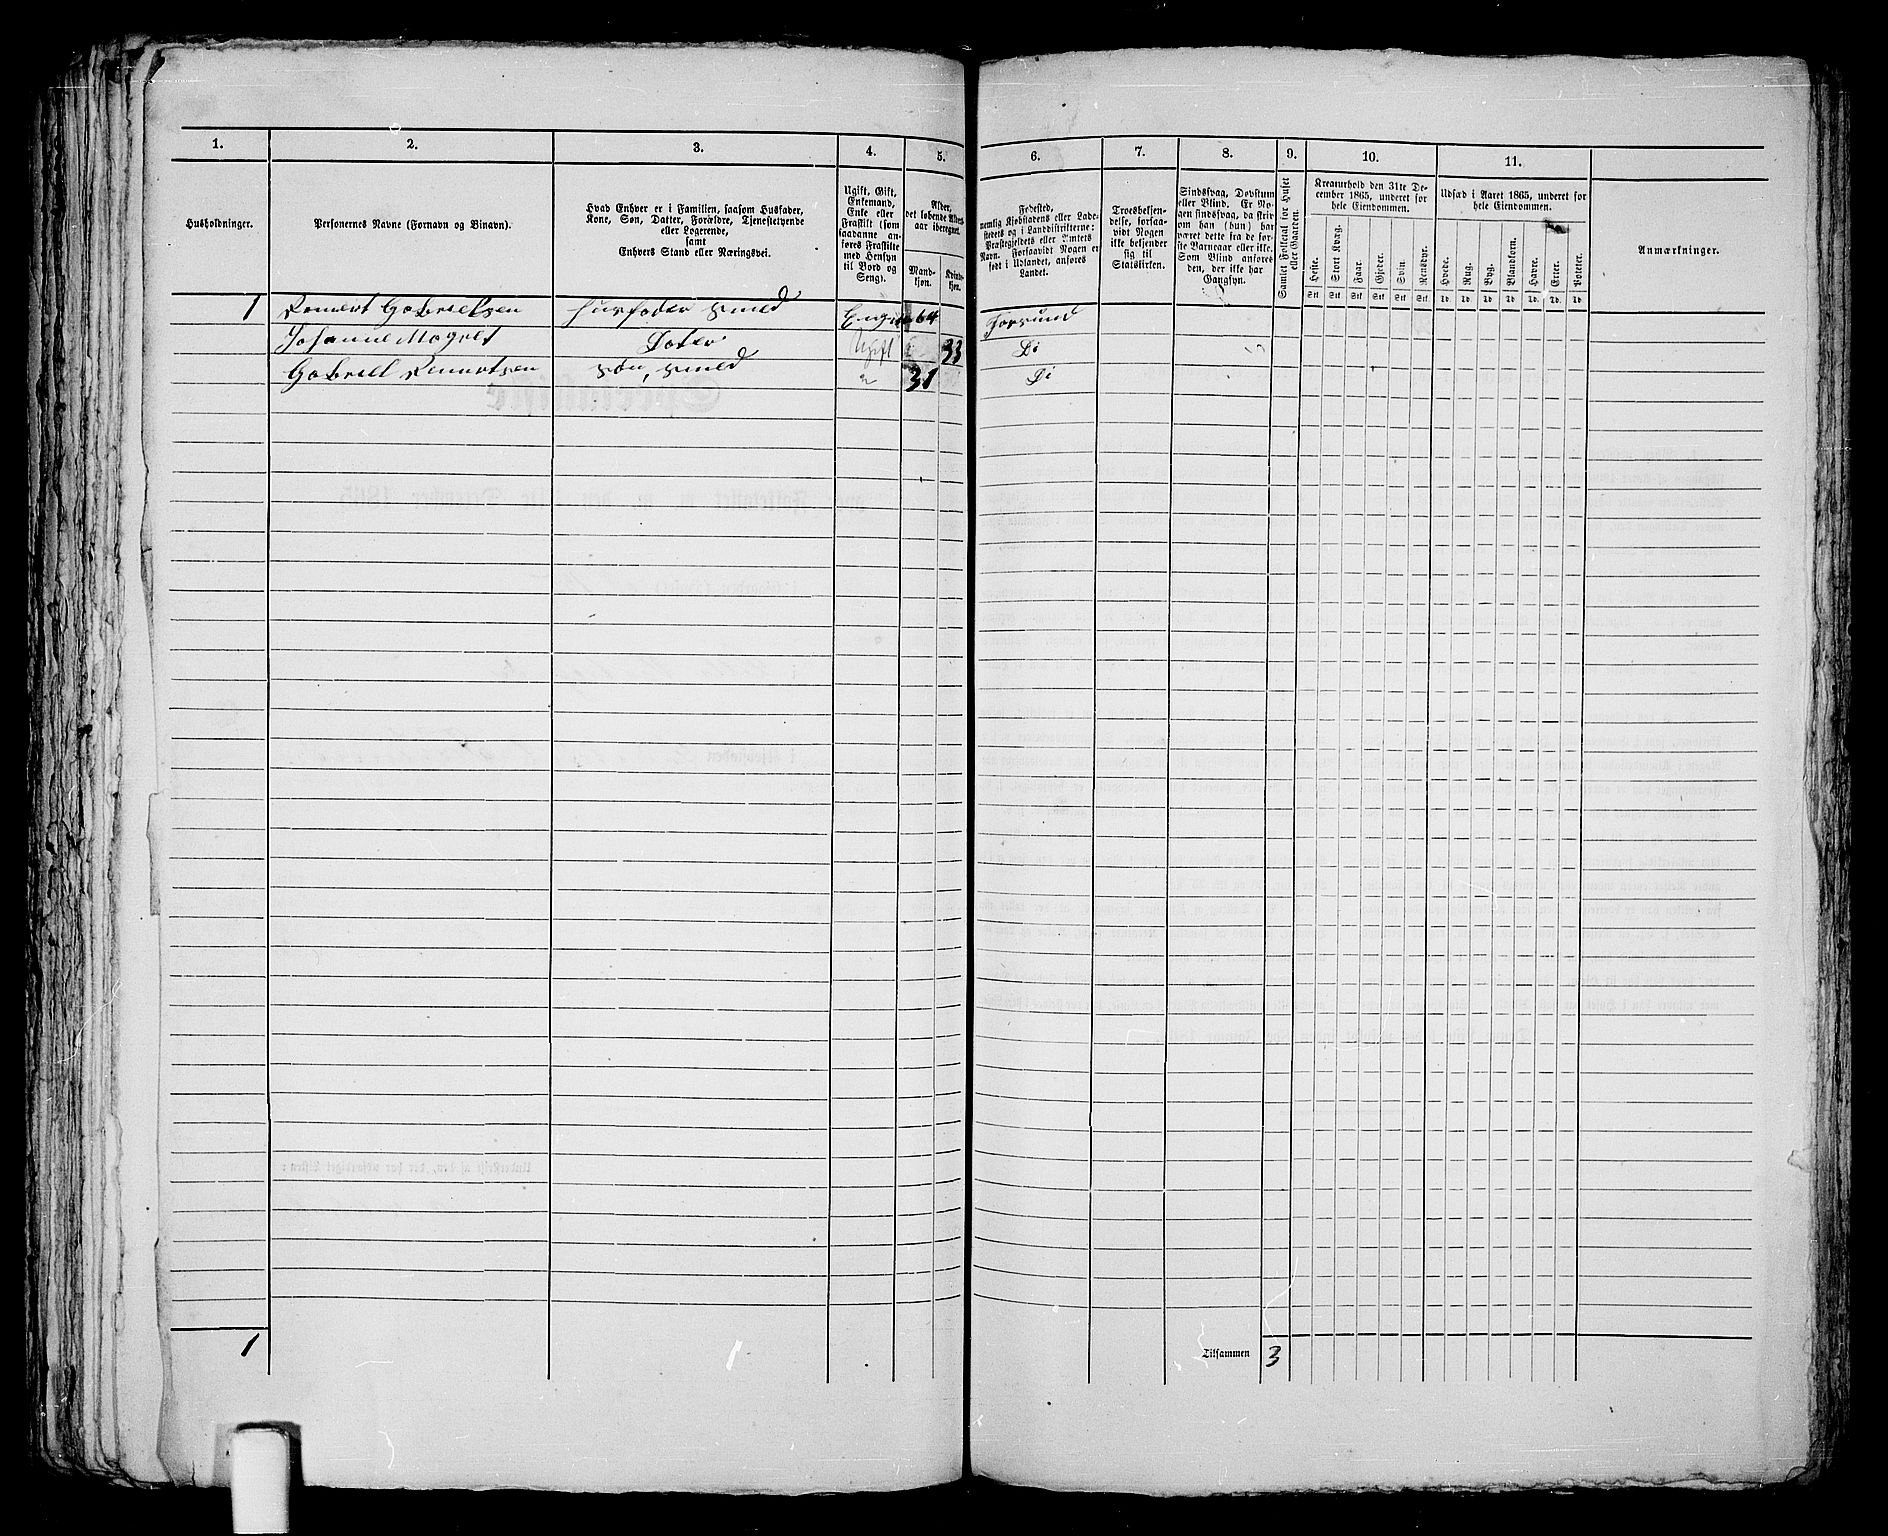 1. 2. 3. 4. 5. 6. 7. 8. 9. 10. 11.
Husholdninger.
Personernes Navne (Fornavn og Binavn).
Hvad Enhver er i Familien, saasom Husfader,
Kone, Søn, Datter, Forældre, Tjenestetyende
eller Logerende,
samt
Enhvers Stand eller Næringsvei.
Ugift, Gift,
Enkemand,
Enke eller
Fraskilt (som
saadanne an-
føres Fraskilte
med Hensyn
til Bord og
Seng).
Alder,
det løbende Alders-
aar iberegnet.
Mand-
kjøn.
Kvinde-
kjøn.
Fødested,
nemlig Kjøbstadens eller Lade-
stedets og i Landdistrikterne:
Præstegjeldets eller Amtets
Navn. Forsaavidt Nogen er
født i Udlandet, anføres
Landet.
Troesbekjen-
delse, forsaa-
vidt Nogen
ikke bekjender
sig til
Statskirken.
Sindssvag, Døvstum
eller Blind. Er No-
gen sindssvag, da skriv
om han (hun) har
været dette fra de før-
ste Barneaar eller ikke.
Som Blind anføres
den, der ikke har
Gangsyn.
Samlet Folketal for Huset
eller Gaarden.
Kreaturhold den 31te De-
cember 1865, underet for
hele Eiendommen.
Heste. Stort Kvæg. Faar. Gjeder. Svin. Rensdyr.
Stk Stk Stk Stk Stk Stk
Udsæd i Aaret 1865, underet for
hele Eiendommen.
Hvede. Rug. Byg. Blandkorn. Havre. Erter. Poteter.
Td. Td. Td. Td. Td. Td. Td.
Anmærkninger.
1 Renert Gabrielsen Husfader Smed 64 Forsund
Johanne Magret Dater Ugift 33 Do
Gabriell Renertsen Søn, Smed 31 Do
1 Tilsammen 3